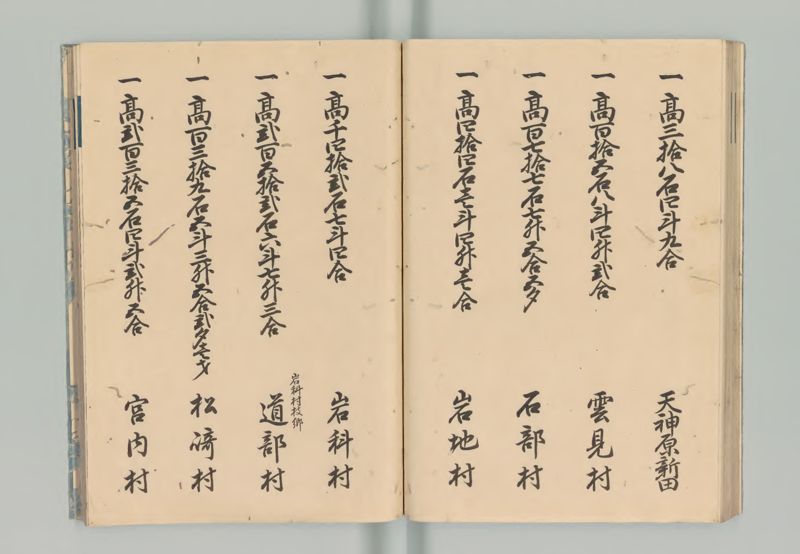 一高三拾八石四斗九合 天神原新田
一高百拾五石八斗四升弐合 雲見村
一高百七拾七石七升五合五夕 石部村
一高四拾四石壱斗四升壱合 岩地村
一高千四拾弐石七斗四合 岩科村
岩科村枝郷
一高弐百五拾弐石六斗七升三合 道部村
一高百三拾九石五斗三升五合弐夕壱才 松崎村
一高弐百三拾五石四斗弐升五合 宮内村